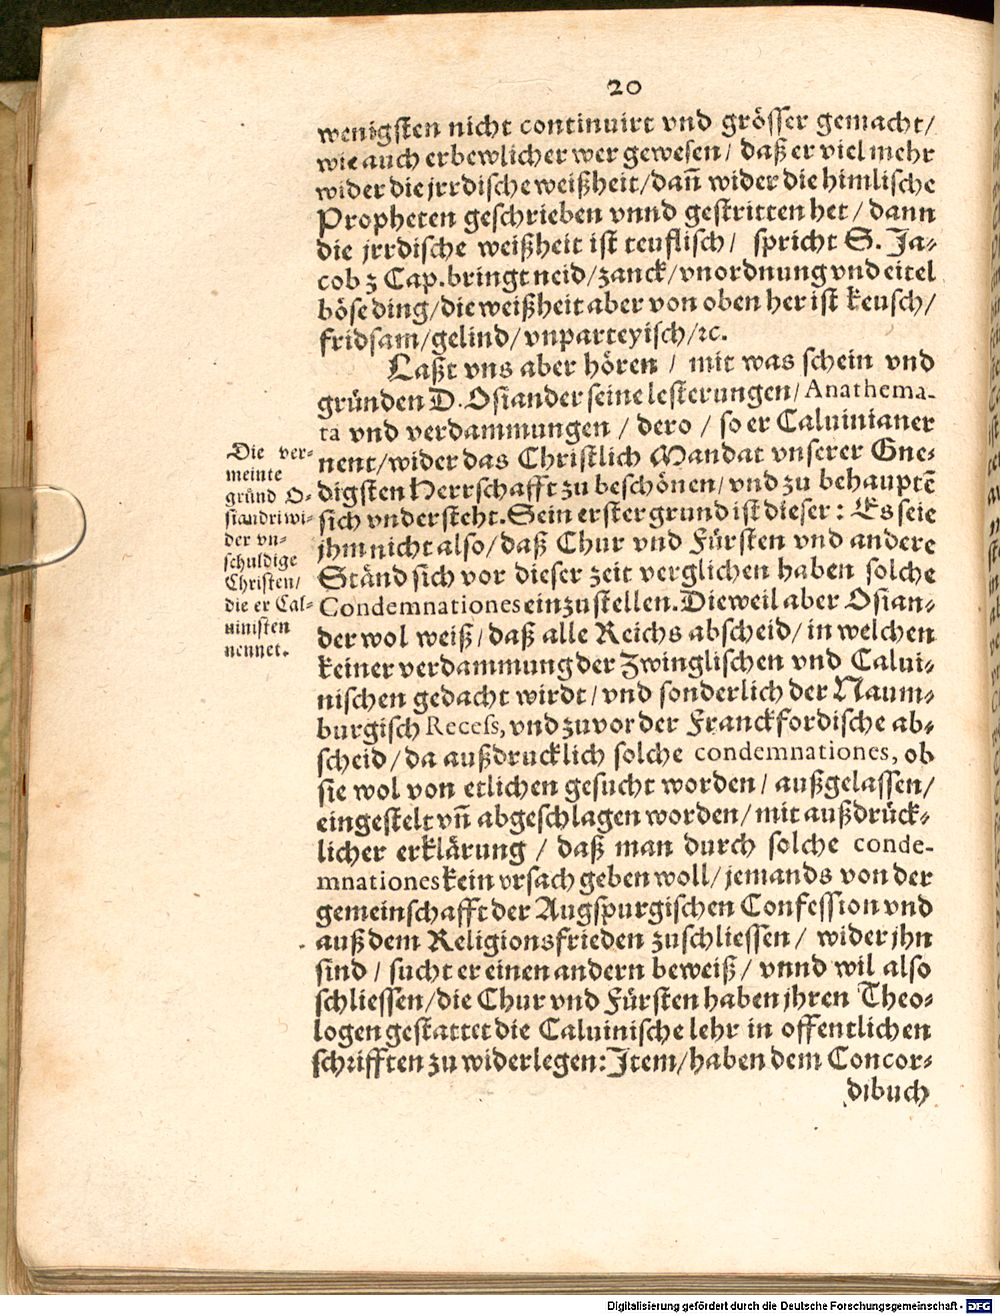 20
wenigsten nicht continuirt vnd grösser gemacht/
wie auch erbewlicher wer gewesen/ daß er viel mehr
wider die jrrdische weißheit/dañ wider die himlische
Propheten geschrieben vnnd gestritten het/ dann
die jrrdische weißheit ist teuflisch/ spricht S. Ja-
cob 3 Cap. bringt neid/zanck/vnordnung vnd eitel
böse ding/die weißheit aber von oben her ist keusch/
fridsam/gelind/vnparteyisch/ꝛc.
Laßt vns aber hören / mit was schein vnd
gründen D. Osiander seine lesterungen/ Anathema-
ta vnd verdammungen / dero / so er Caluinianer
nent/wider das Christlich Mandat vnserer Gne-
digsten Herrschafft zu beschönen/ vnd zu behauptē
sich vndersteht. Sein erster grund ist dieser: Es seie
jhm nicht also/daß Chur vnd Fürsten vnd andere
Ständ sich vor dieser zeit verglichen haben solche
Condemnationes einzustellen. Dieweil aber Osian-
der wol weiß/daß alle Reichs abscheid/in welchen
keiner verdammung der Zwinglischen vnd Calui-
nischen gedacht wirdt/vnd sonderlich der Naum-
burgisch Recess, vnd zuvor der Franckfordische ab-
scheid/da außdrucklich solche condemnationes, ob
sie wol von etlichen gesucht worden/ außgelassen/
eingestelt vñ abgeschlagen worden/mit außdrück-
licher erklärung / daß man durch solche conde-
mnationes kein vrsach geben woll/jemands von der
gemeinschafft der Augspurgischen Confession vnd
auß dem Religionsfrieden zuschliessen/ wider jhn
sind / sucht er einen andern beweiß/ vnnd wil also
schliessen/die Chur vnd Fürsten haben jhren Theo-
logen gestattet die Caluinische lehr in offentlichen
schrifften zu widerlegen: Item/haben dem Concor-
dibuch
Die ver-
meinte
gründ O-
siandri wi-
der vn-
schuldige
Christen/
die er Cal-
uinisten
nennet.
Digitalisierung gefördert durch die Deutsche Forschungsgemeinschaft - DFG